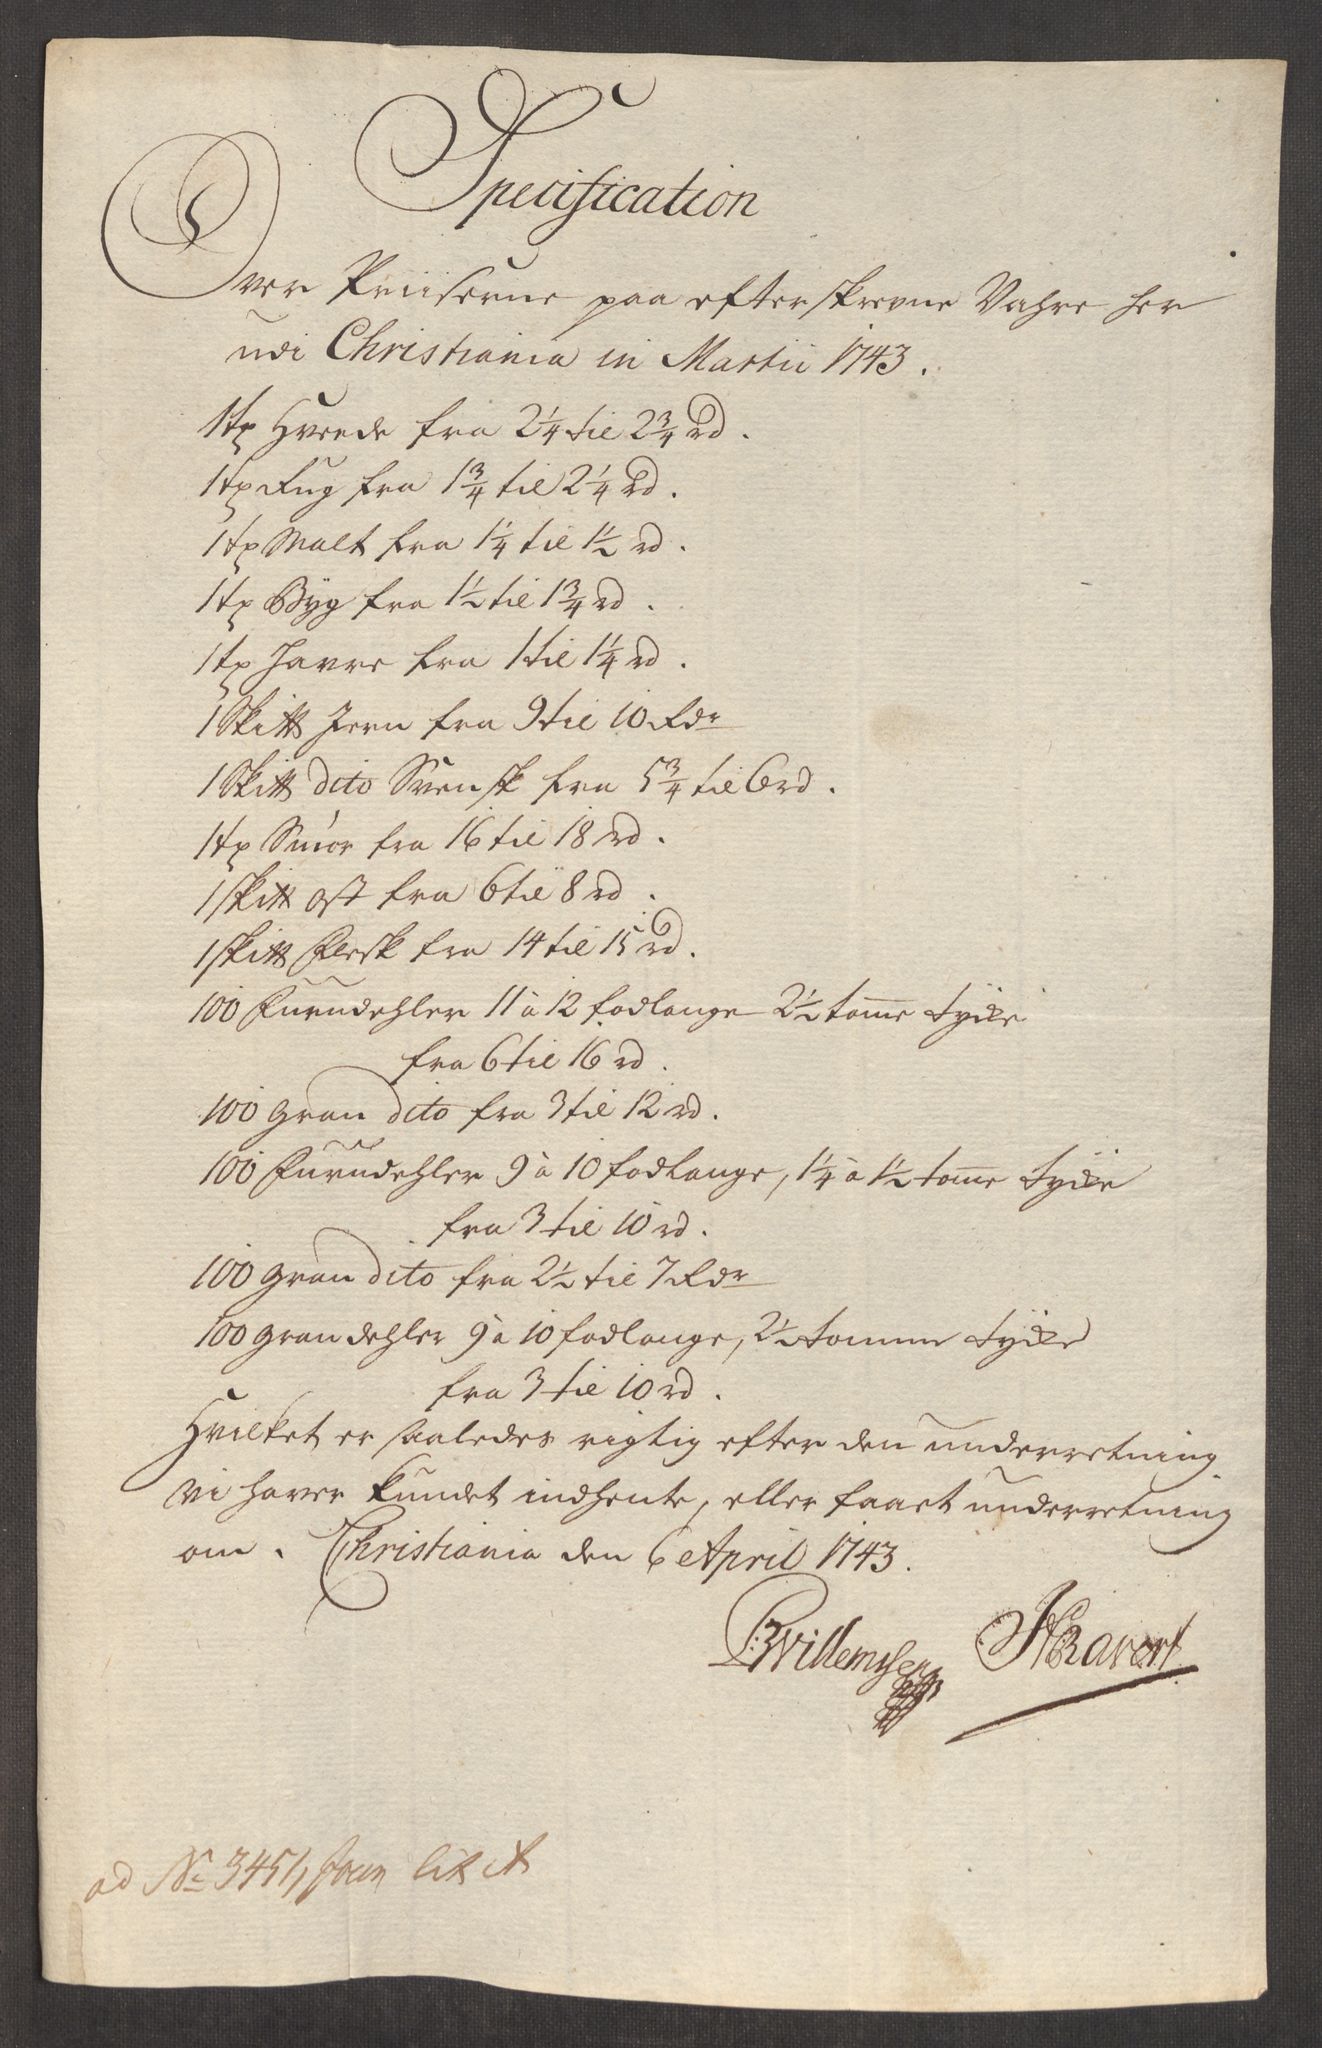 Specification
Over Priiserne paa efterskrevne Vahre her
udi Christiania in Martii 1743.
1 tø Hveede fra 2 1/4 til 2 3/4 rd.
1 tø Rug fra 1 3/4 til 2 1/4 rd.
1 tø Malt fra 1 1/4 til 1 1/2 rd.
1 tø Byg fra 1 1/2 til 1 3/4 rd.
1 tø Havre fra 1 til 1 1/4 rd.
1 Skitt Jern fra 9 til 10 Rdr
1 Skitt dito Svensk fra 5 3/4 til 6 rd.
1 tø Smør fra 16 til 18 rd.
1 skitt ost fra 6 til 8 rd.
1 skitt Flesk fra 14 til 15 rd.
100 Furudehler 11 à 12 fodlange 2 1/2 tome tycke
fra 6 til 16 rd.
100 gran dito fra 3 til 12 rd.
100 Furudehler 9 à 10 fodlange, 1 1/4 à 1 1/2 tome tycke
fra 3 til 10 rd.
100 gran dito fra 2 1/2 til 7 Rdr
100 gran dehler 9 à 10 fodlange, 2 1/2 tomme tycke
fra 3 til 10 rd.
Hvilket er saaledes rigtig efter den underretning
vi haver kundet indhente, eller faaet underretning
om. Christiania den 6 April 1743.
BWillemsen HRavert
ad No 3451, Joun lit A